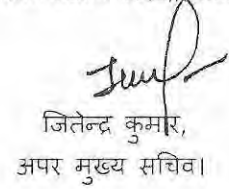 जितेन्द्र कुमार,
अपर मुख्य सचिव।